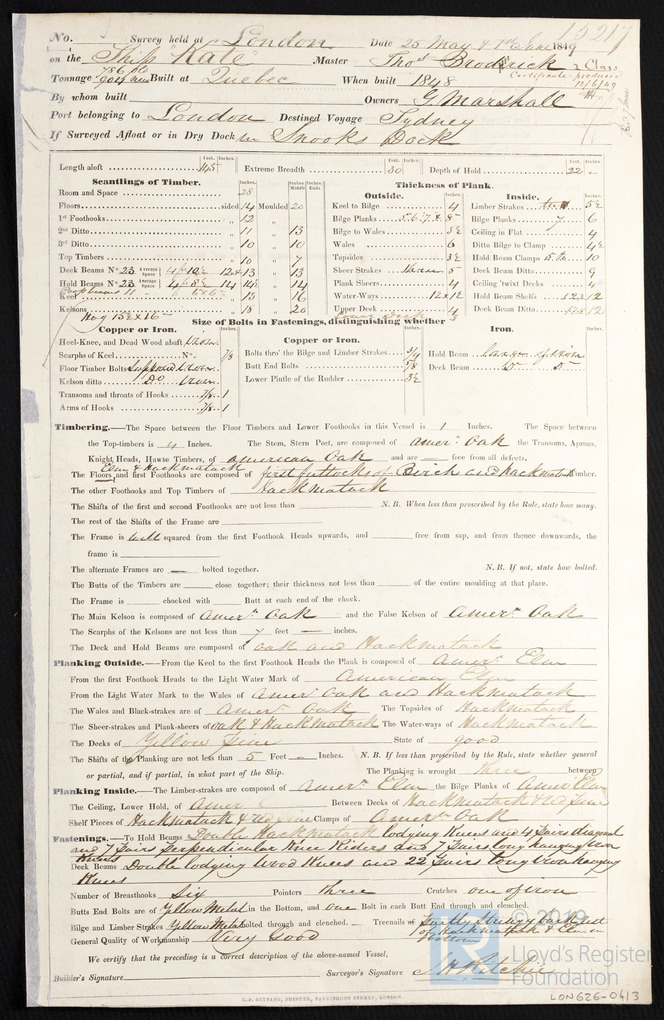 No. Survey held at London Date 25 May & 1st June 1849
15217
on the Ship "Kate" Master Thos Brodrick
Class
Tonnage Built at Quebec When built 1848
By whom built Owners G Marshall
Port belonging to London Destined Voyage Sydney
If Surveyed Afloat or in Dry Dock in Snooks Dock
Length aloft 145 Extreme Breadth 30 Depth of Hold 22
Scantlings of Timber.
Room and Space 28
Floors sided 14 Moulded 20
1st Foothooks 12
2nd Ditto 11 13
3rd Ditto 10 10
Top Timbers 10 7
Deck Beams No 23 Average Space 13 13
Hold Beams No 23 Average Space 14
Keel 13 16
Kelsons 18 20
Thickness of Plank.
Outside.
Keel to Bilge 4
Bilge Planks 5.6.7.8
Bilge to Wales 3½
Wales 6
Topsides 3½
Sheer Strakes three 5
Plank Sheers 4
Water-Ways 12x12
Upper Deck
Inside.
Limber Strakes 5½
Bilge Planks 7 6
Ceiling in Flat 4
Ditto Bilge to Clamp 4½
Hold Beam Clamps 10
Deck Beam Ditto 9
Ceiling 'twixt Decks 4
Hold Beam Shelfs 12x12
Deck Beam Ditto 12
Size of Bolts in Fastenings, distinguishing whether
Copper or Iron.
Heel-Knee, and Dead Wood abaft Iron
Scarphs of Keel No. 7/8
Floor Timber Bolts
Kelson ditto Do Iron
Transoms and throats of Hooks 7/8.1
Arms of Hooks 7/8.1
Copper or Iron.
Bolts thro' the Bilge and Limber Strakes 3/4
Butt End Bolts 7/8
Lower Pintle of the Rudder 3½
Iron.
Hold Beam
Deck Beam Do Do
Timbering.—The Space between the Floor Timbers and Lower Foothooks in this Vessel is 1 Inches. The Space between
the Top-timbers is 4 Inches. The Stem, Stern Post, are composed of Amern Oak the Transoms, Aprons,
Knight Heads, Hawse Timbers, of American Oak and are — free from all defects.
Elm & Hackmatack
The Floors and first Foothooks are composed of first futtocks of Birch and Hackmatack Timber.
The other Foothooks and Top Timbers of Hackmatack
The Shifts of the first and second Foothooks are not less than N. B. When less than prescribed by the Rule, state how many.
The rest of the Shifts of the Frame are
The Frame is well squared from the first Foothook Heads upwards, and free from sap, and from thence downwards, the
frame is
The alternate Frames are — bolted together. N. B. If not, state how bolted.
The Butts of the Timbers are close together; their thickness not less than of the entire moulding at that place.
The Frame is chocked with Butt at each end of the chock.
The Main Kelson is composed of Amern Oak and the False Kelson of Amern Oak
The Scarphs of the Kelsons are not less than 7 feet — inches.
The Deck and Hold Beams are composed of oak and Hackmatack
Planking Outside.—From the Keel to the first Foothook Heads the Plank is composed of Amern Elm
From the first Foothook Heads to the Light Water Mark of American Elm
From the Light Water Mark to the Wales of Amern Oak and Hackmatack
The Wales and Black-strakes are of Amern Oak The Topsides of Hackmatack
The Sheer-strakes and Plank-sheers of oak & Hackmatack The Water-ways of Hackmatack
The Decks of Yellow Pine State of good
The Shifts of the Planking are not less than 5 Feet — Inches. N. B. If less than prescribed by the Rule, state whether general
or partial, and if partial, in what part of the Ship. The Planking is wrought three between
Planking Inside.—The Limber-strakes are composed of Amern Elm the Bilge Planks of Amern Elm
The Ceiling, Lower Hold, of Amer Between Decks of Hackmatack & red Pine
Shelf Pieces of Hackmatack & red Pine Clamps of Amern Oak
Fastenings.—To Hold Beams Double Hackmatack lodging Knees and 4 Pairs diagonal
and 7 Pairs perpendicular Knee Riders and 7 Pairs long hanging iron
Knees
Deck Beams Double lodging Wood Knees and 22 Pairs long iron hanging
Knees
Number of Breasthooks Six Pointers three Crutches one of iron
Butts End Bolts are of Yellow Metal in the Bottom, and one Bolt in each Butt End through and clenched.
Bilge and Limber Strakes Yellow Metal bolted through and clenched. — Treenails of
General Quality of Workmanship Very Good
We certify that the preceding is a correct description of the above-named Vessel,
Builder's Signature Surveyor's Signature
C. F. SEYFANG, PRINTER, FARRINGDON STREET, LONDON.
© 2019
Lloyd's Register
Foundation
LON626-0413